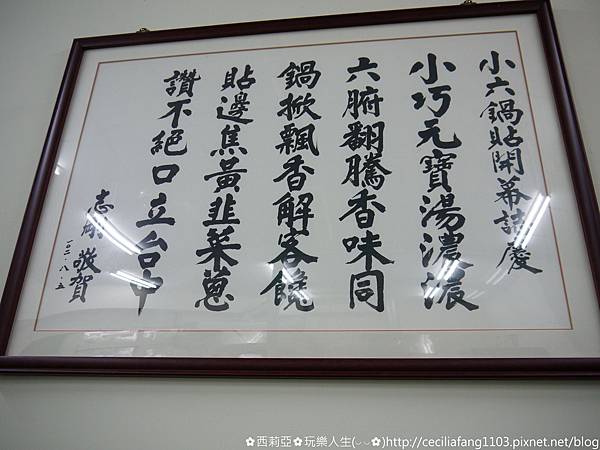 小六鍋貼開幕誌慶
小巧元寶湯濃濃
六腑翻騰香味同
鍋掀飄香解客饞
貼邊焦黃韭菜蔥
讚不絕口立台中
志 敬賀
一〇二.八.五
✿西莉亞✿玩樂人生(⌣⌣✿)http://ceciliafang1103.pixnet.net/blog